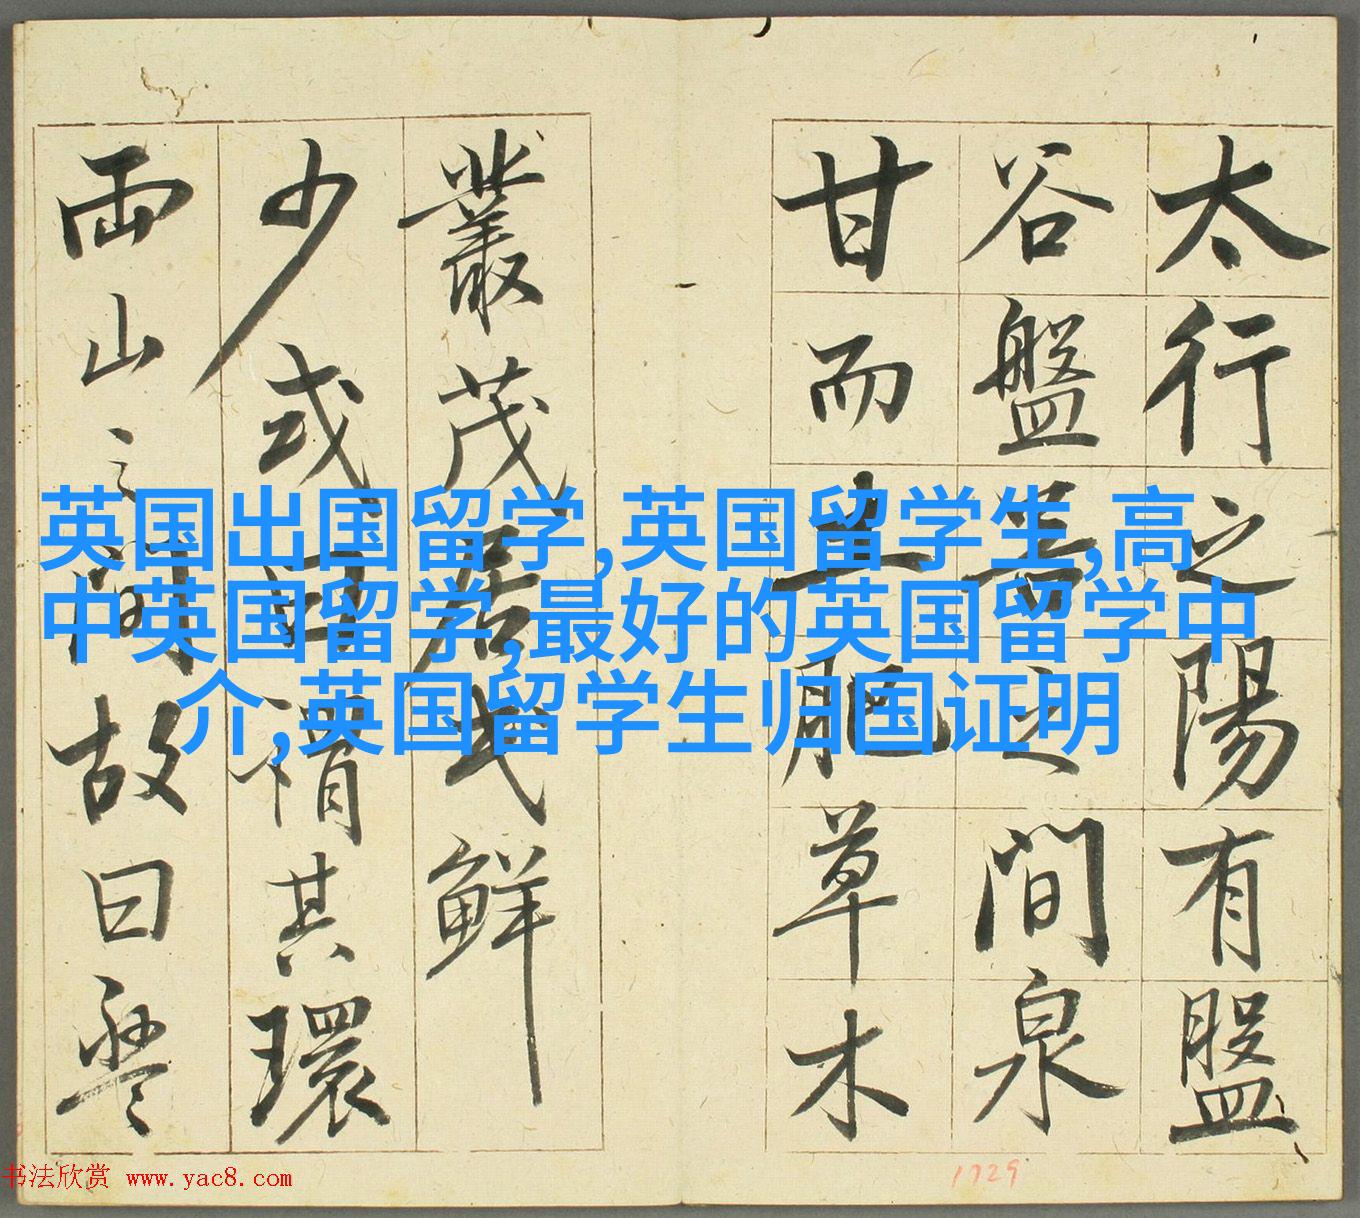 太行之陽有盤
谷盤谷之間泉
甘而土肥草木
叢茂居民鮮
少或曰謂其環
兩山之間故曰盤
英国出国留学,英国留学生,高
中英国留学,最好的英国留学中
介,英国留学生归国证明
书法欣赏 www.yac8.com
1729